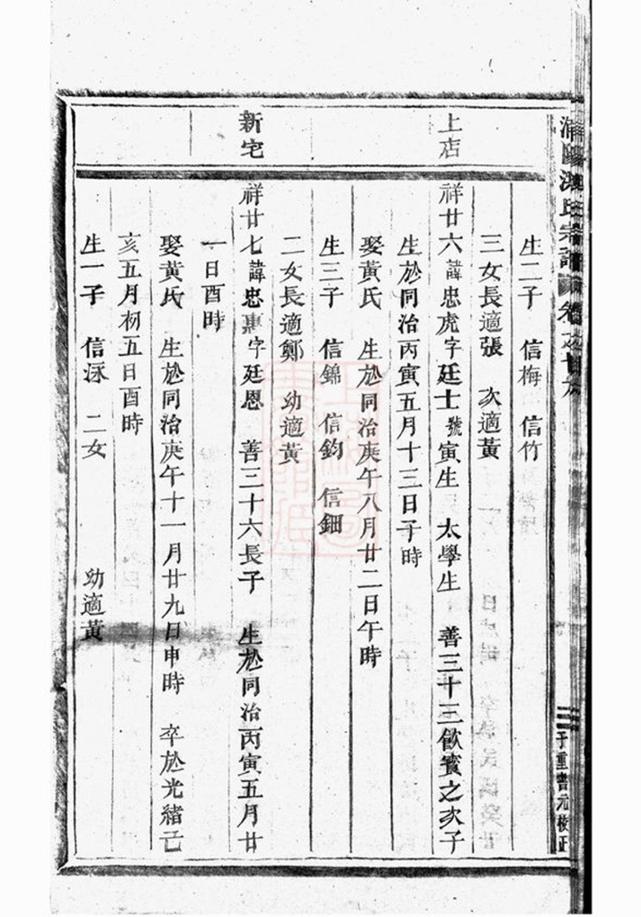 氏宗譜 卷之廿九
生二子 信梅 信竹
三女長適張 次適黃
上店
祥廿六諱忠虎字廷士號寅生 太學生 善三十三飲賓之次子
生於同治丙寅五月十三日子時
娶黃氏 生於同治庚午八月廿二日午時
生三子 信錦 信鈞 信鈿
二女長適鄭 幼適黃
新宅
祥廿七諱忠惠字廷恩 善三十六長子 生於同治丙寅五月廿
一日酉時
娶黃氏 生於同治庚午十一月廿九日申時 卒於光緒己
亥五月初五日酉時
生一子 信泳 二女 幼適黃